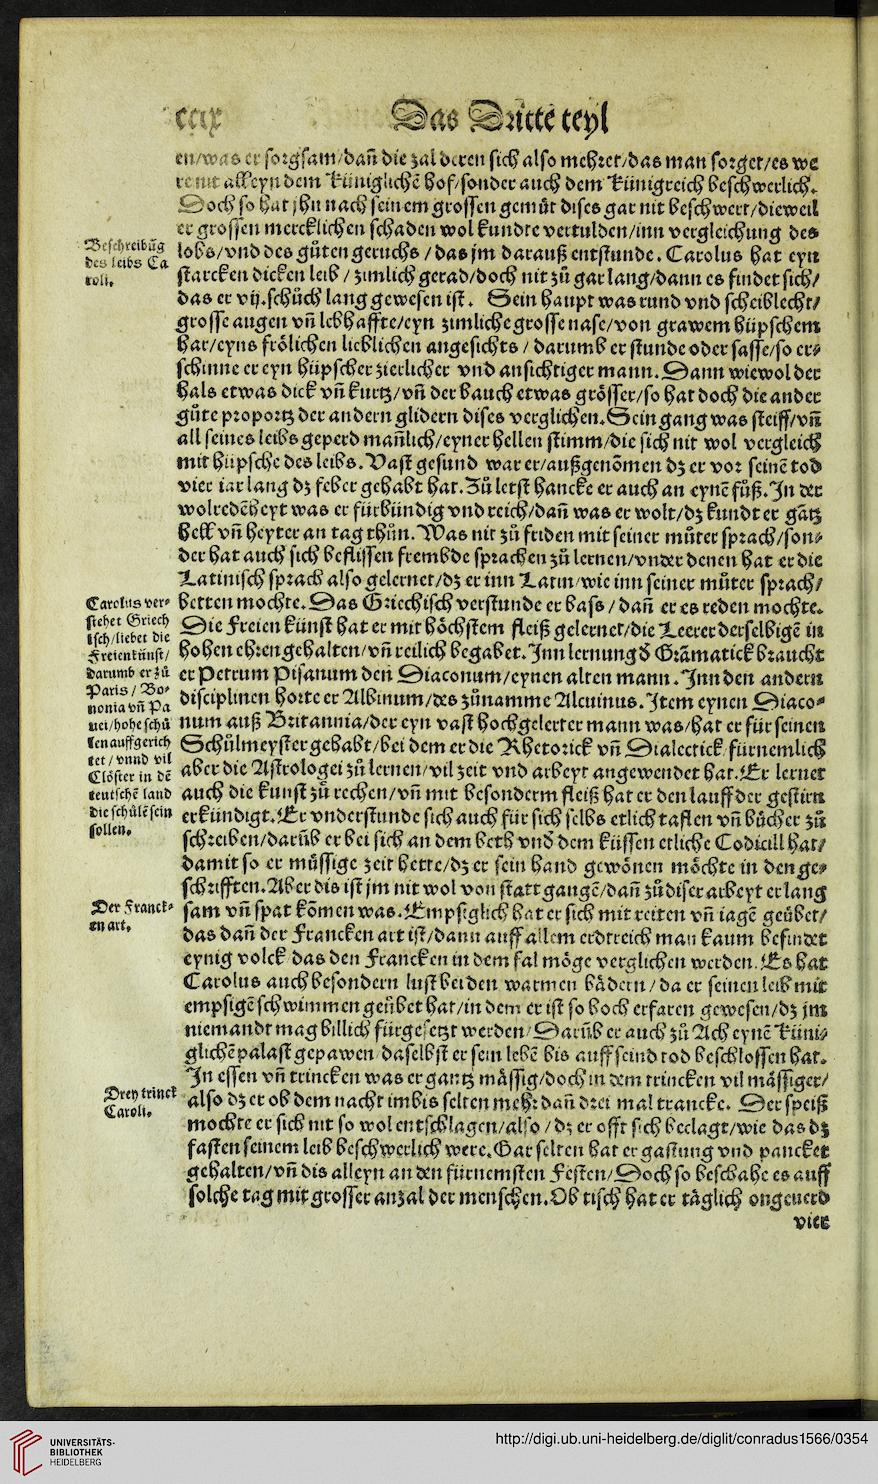 ccix
Das Dritte teyl
en/was er sorgsam/dañ die zal deren sich also mehret/das man sorget/es we
re nit alleyn dem küniglichē hof/sonder auch dem künigreich beschwerlich.
Doch so hat jhn nach seinem grossen gemüt dises gar nit beschwert/dieweil
er grossen mercklichen schaden wol kundte vertulden/inn vergleichung des
lobs/vnd des gůten geruchs/das jm darauß entstunde. Carolus hat eyn
starcken dicken leib/zimlich gerad/doch nit zů gar lang/dann es findet sich/
das er vij.schůch lang gewesen ist. Sein haupt was rund vnd scheiblecht/
grosse augen vñ lebhaffte/eyn zimliche grosse nase/von grawem hüpschem
har/eyns frölichen lieblichen angesichts/darumb er stunde oder sasse/so er⸗
schinne er eyn hüpscher zierlicher vnd ansichtiger mann. Dann wiewol der
hals etwas dick vñ kurtz/vñ der bauch etwas grösser/so hat doch die ander
gůte proportz der andern glidern dises verglichen. Sein gang was steiff/vñ
all seines leibs geperd mañlich/eyner hellen stimm/die sich nit wol vergleich
mit hüpsche des leibs. Vast gesund war er/außgenōmen dz er vor seinē tod
vier iar lang dz feber gehabt hat. Zů letst hancke er auch an eynē fůß. In der
wolredēheyt was er fürbündig vnd reich/dañ was er wolt/dz kundt er gātz
hell vñ heyter an tag thůn. Was nit zů friden mit seiner můter sprach/son⸗
der hat auch sich beflissen frembde sprachen zů lernen/vnder denen hat er die
Latinisch sprach also gelernet/dz er inn Latin/wie inn seiner můter sprach/
betten mochte. Das Griechisch verstunde er bass/dañ er es reden mochte.
Die Freien künst hat er mit höchstem fleiß gelernet/die Leerer derselbigē in
hohen ehren gehalten/vñ reilich begabet. Inn lernung d' Grāmatick braucht
er Petrum Pisanum den Diaconum/eynen alten mann. Inn den andern
disciplinen horte er Albinum/des zůnamme Alcuinus. Item eynen Diaco⸗
num auß Britannia/der eyn vast hochgelerter mann was/hat er für seinen
Schůlmeyster gehabt/bei dem er die Rhetorick vñ Dialectick/fürnemlich
aber die Astrologei zů lernen/vil zeit vnd arbeyt angewendet hat. Er lernet
auch die kunst zů rechen/vñ mit besonderm fleiß hat er den lauff der gestirn
erkündigt. Er vnderstunde sich auch für sich selbs etlich taflen vñ bücher zů
schreiben/darüb er bei sich an dem beth vnd dem küssen etliche Codicill hat/
damit so er müssige zeit hette/dz er sein hand gewönen möchte in den ge⸗
schrifften. Aber dis ist jm nit wol von statt gangē/dañ zů diser arbeyt er lang
sam vñ spat kōmen was. Empsiglich hat er sich mit reiten vñ iagē geübet/
das dañ der Francken art ist/dann auff allem erdtreich man kaum befindet
eynig volck das den Francken in dem fal möge verglichen werden. Es hat
Carolus auch besondern lust bei den warmen bädern/da er seinen leib mit
empsigē schwimmen geübet hat/in dem er ist so hoch erfaren gewesen/dz jm
niemandt mag billich fürgesetzt werden/Darüb er auch zů Ach eynē küni⸗
glichē palast gepawen/daselbst er sein lebē bis auff seind tod beschlossen hat.
In essen vñ trincken was er gantz mässig/doch in dem trincken vil mässiger/
also dz er ob dem nacht imbis selten mehr dañ drei mal trancke. Der speiß
mochte er sich nit so wol entschlagen/also/dz er offt sich beclagt/wie das dz
fasten seinem leib beschwerlich were. Gar selten hat er gastung vnd pancket
gehalten/vñ dis alleyn an den fürnemsten Festen/Doch so beschahe es auff
solche tag mit grosser anzal der menschen. Ob tisch hat er täglich ongeuerd
vier
Beschreibūg
des leibs Ca
roli.
Carolus ver⸗
stehet Griech
isch/liebet die
Freien künst/
darumb er zů
Paris/Bo⸗
nonia vñ Pa
uei/hohe schů
len auffgerich
tet/vnnd vil
Clöster in dē
teutschē land
die schůlē sein
sollen.
Der Franck⸗
en art.
Drey trinck
Caroli.
UNIVERSITÄTS-
BIBLIOTHEK
HEIDELBERG
http://digi.ub.uni-heidelberg.de/diglit/conradus1566/0354